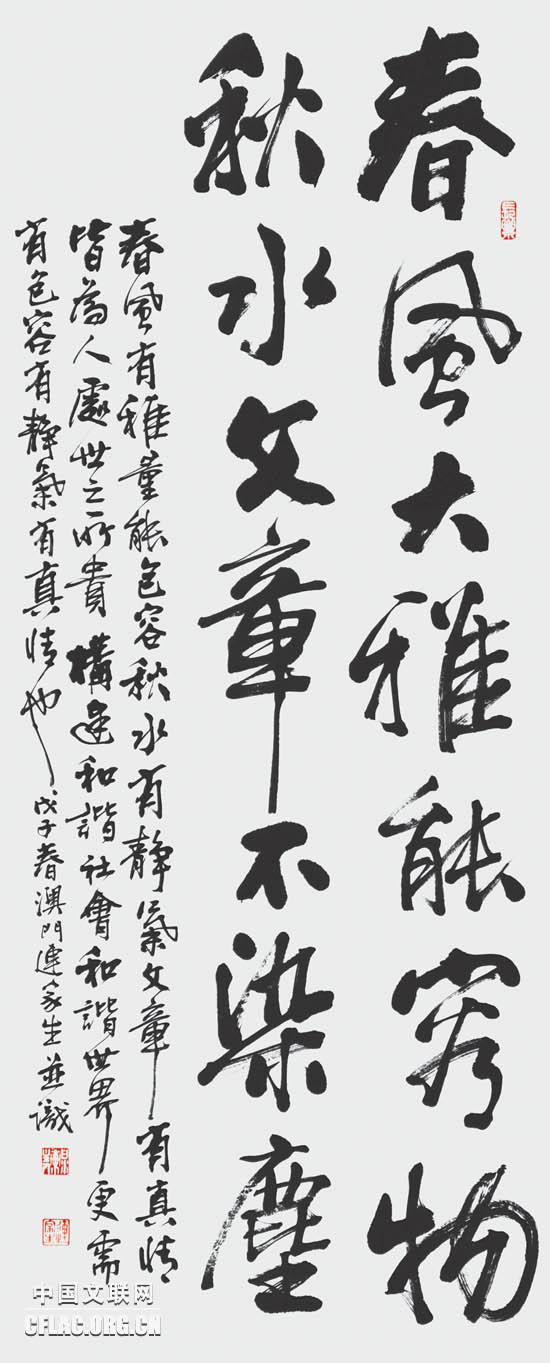 春風大雅能容物
秋水文章不染塵
春風有雅量能包容秋水有靜氣文章有真情
皆為人處世之所貴構建和諧社會和諧世界更需
有包容有靜氣有真情也
戊子春澳門連家生並識
中国文联网
CFLAC.ORG.CN